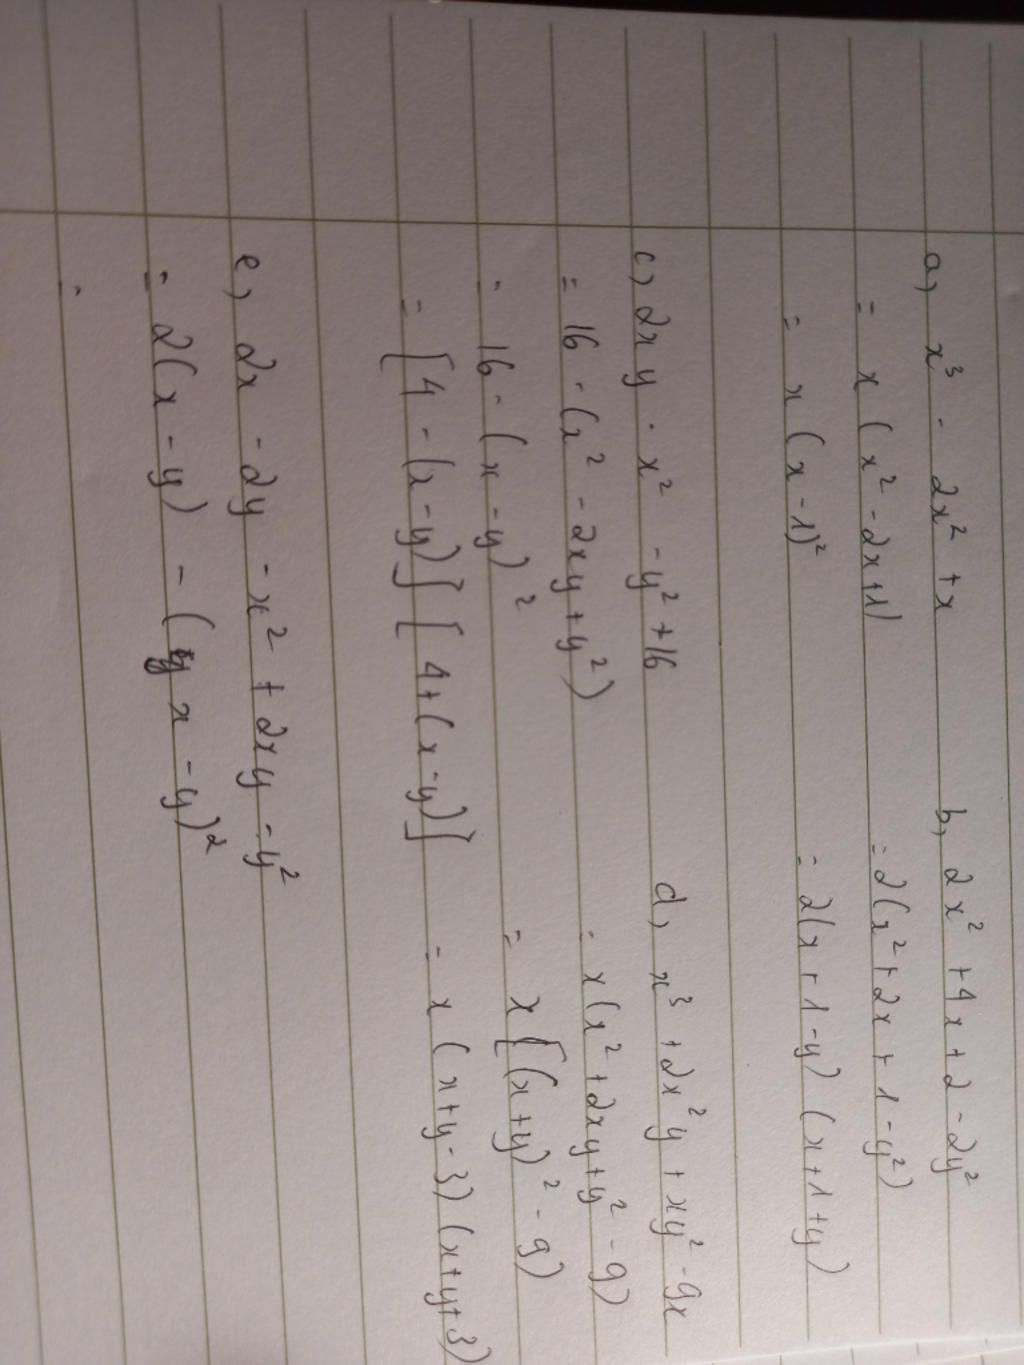 a, x³ - 2x² + x
= x (x² - 2x + 1)
= x (x - 1)²
b, 2x² + 4x + 2 - 2y²
= 2(x² + 2x + 1 - y²)
= 2(x + 1 - y) (x + 1 + y)
c, 2xy - x² - y² + 16
= 16 - (x² - 2xy + y²)
= 16 - (x - y)²
= [4 - (x - y)] [4 + (x - y)]
d, x³ + 2x²y + xy² - 9x
= x(x² + 2xy + y² - 9)
= x [(x + y)² - 9)
= x (x + y - 3) (x + y + 3)
e, 2x - 2y - x² + 2xy - y²
= 2(x - y) - (x - y)²